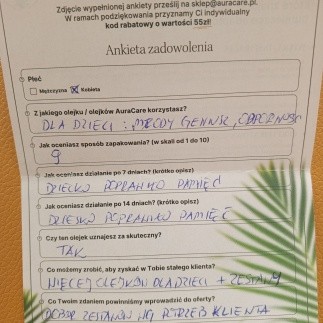 Zdjęcie wypełnionej ankiety prześlij na sklep@auracare.pl.
W ramach podziękowania przyznamy Ci indywidualny
kod rabatowy o wartości 55zł!
Ankieta zadowolenia
Płeć
Mężczyzna Kobieta
Z jakiego olejku / olejków AuraCare korzystasz?
DLA DZIECI: MŁODY GENIUSZ, ODPORNUSZ
Jak oceniasz sposób zapakowania? (w skali od 1 do 10)
9
Jak oceniasz działanie po 7 dniach? (krótko opisz)
DZIECKO POPRAWIŁO PAMIĘĆ
Jak oceniasz działanie po 14 dniach? (krótko opisz)
DZIECKO POPRAWIŁO PAMIĘĆ
Czy ten olejek uznajesz za skuteczny?
TAK
Co możemy zrobić, aby zyskać w Tobie stałego klienta?
WIĘCEJ OLEJKÓW DLA DZIECI + ZESTAWY
Co Twoim zdaniem powinniśmy wprowadzić do oferty?
DOBÓR ZESTAWÓW NA POTRZEB KLIENTA